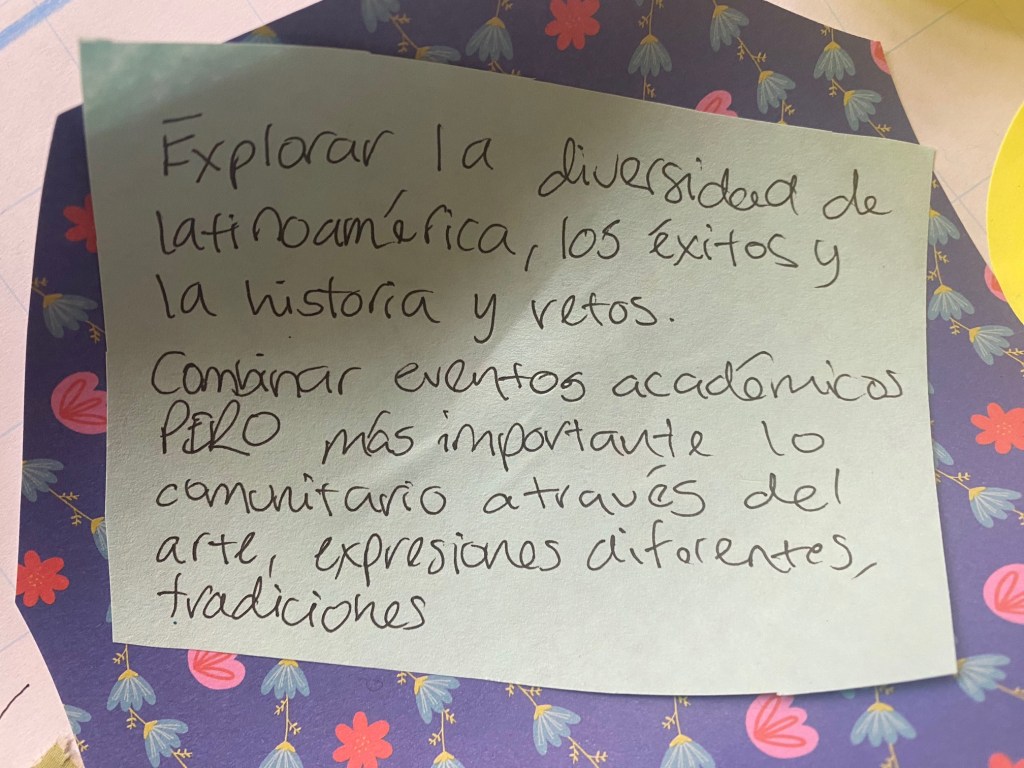 Explorar la diversidad de
latinoamérica, los éxitos y
la historia y retos.
Combinar eventos académicos
PERO más importante lo
comunitario através del
arte, expresiones diferentes,
tradiciones